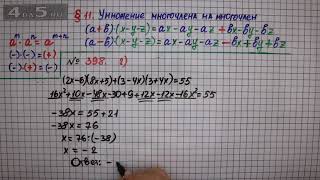 § 11. Умножение многочлена на многочлен
(a+b)·(x-y-z)=ax-ay-az+bx-by-bz
(a-b)·(x-y-z)=ax-ay-az-bx+by+bz
aᵐ·aⁿ=aᵐ⁺ⁿ
(-)·(-)=(+)
(-)·(+)=(-)
№ 398. 2)
(2x-6)(8x+5)+(3-4x)(3+4x)=55
16x²+10x-48x-30+9+12x-12x-16x²=55
-38x=55+21
-38x=76
x=76:(-38)
x=-2
Ответ: -